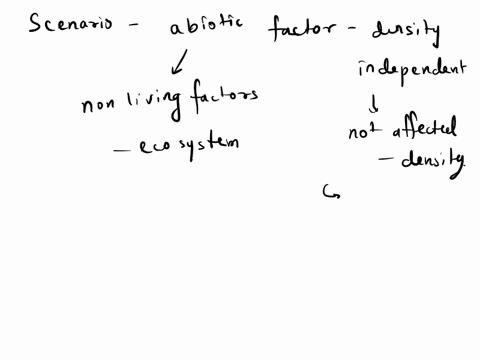 Scenario - abiotic factor - density
independent
non living factors
- ecosystem
not affected
- density